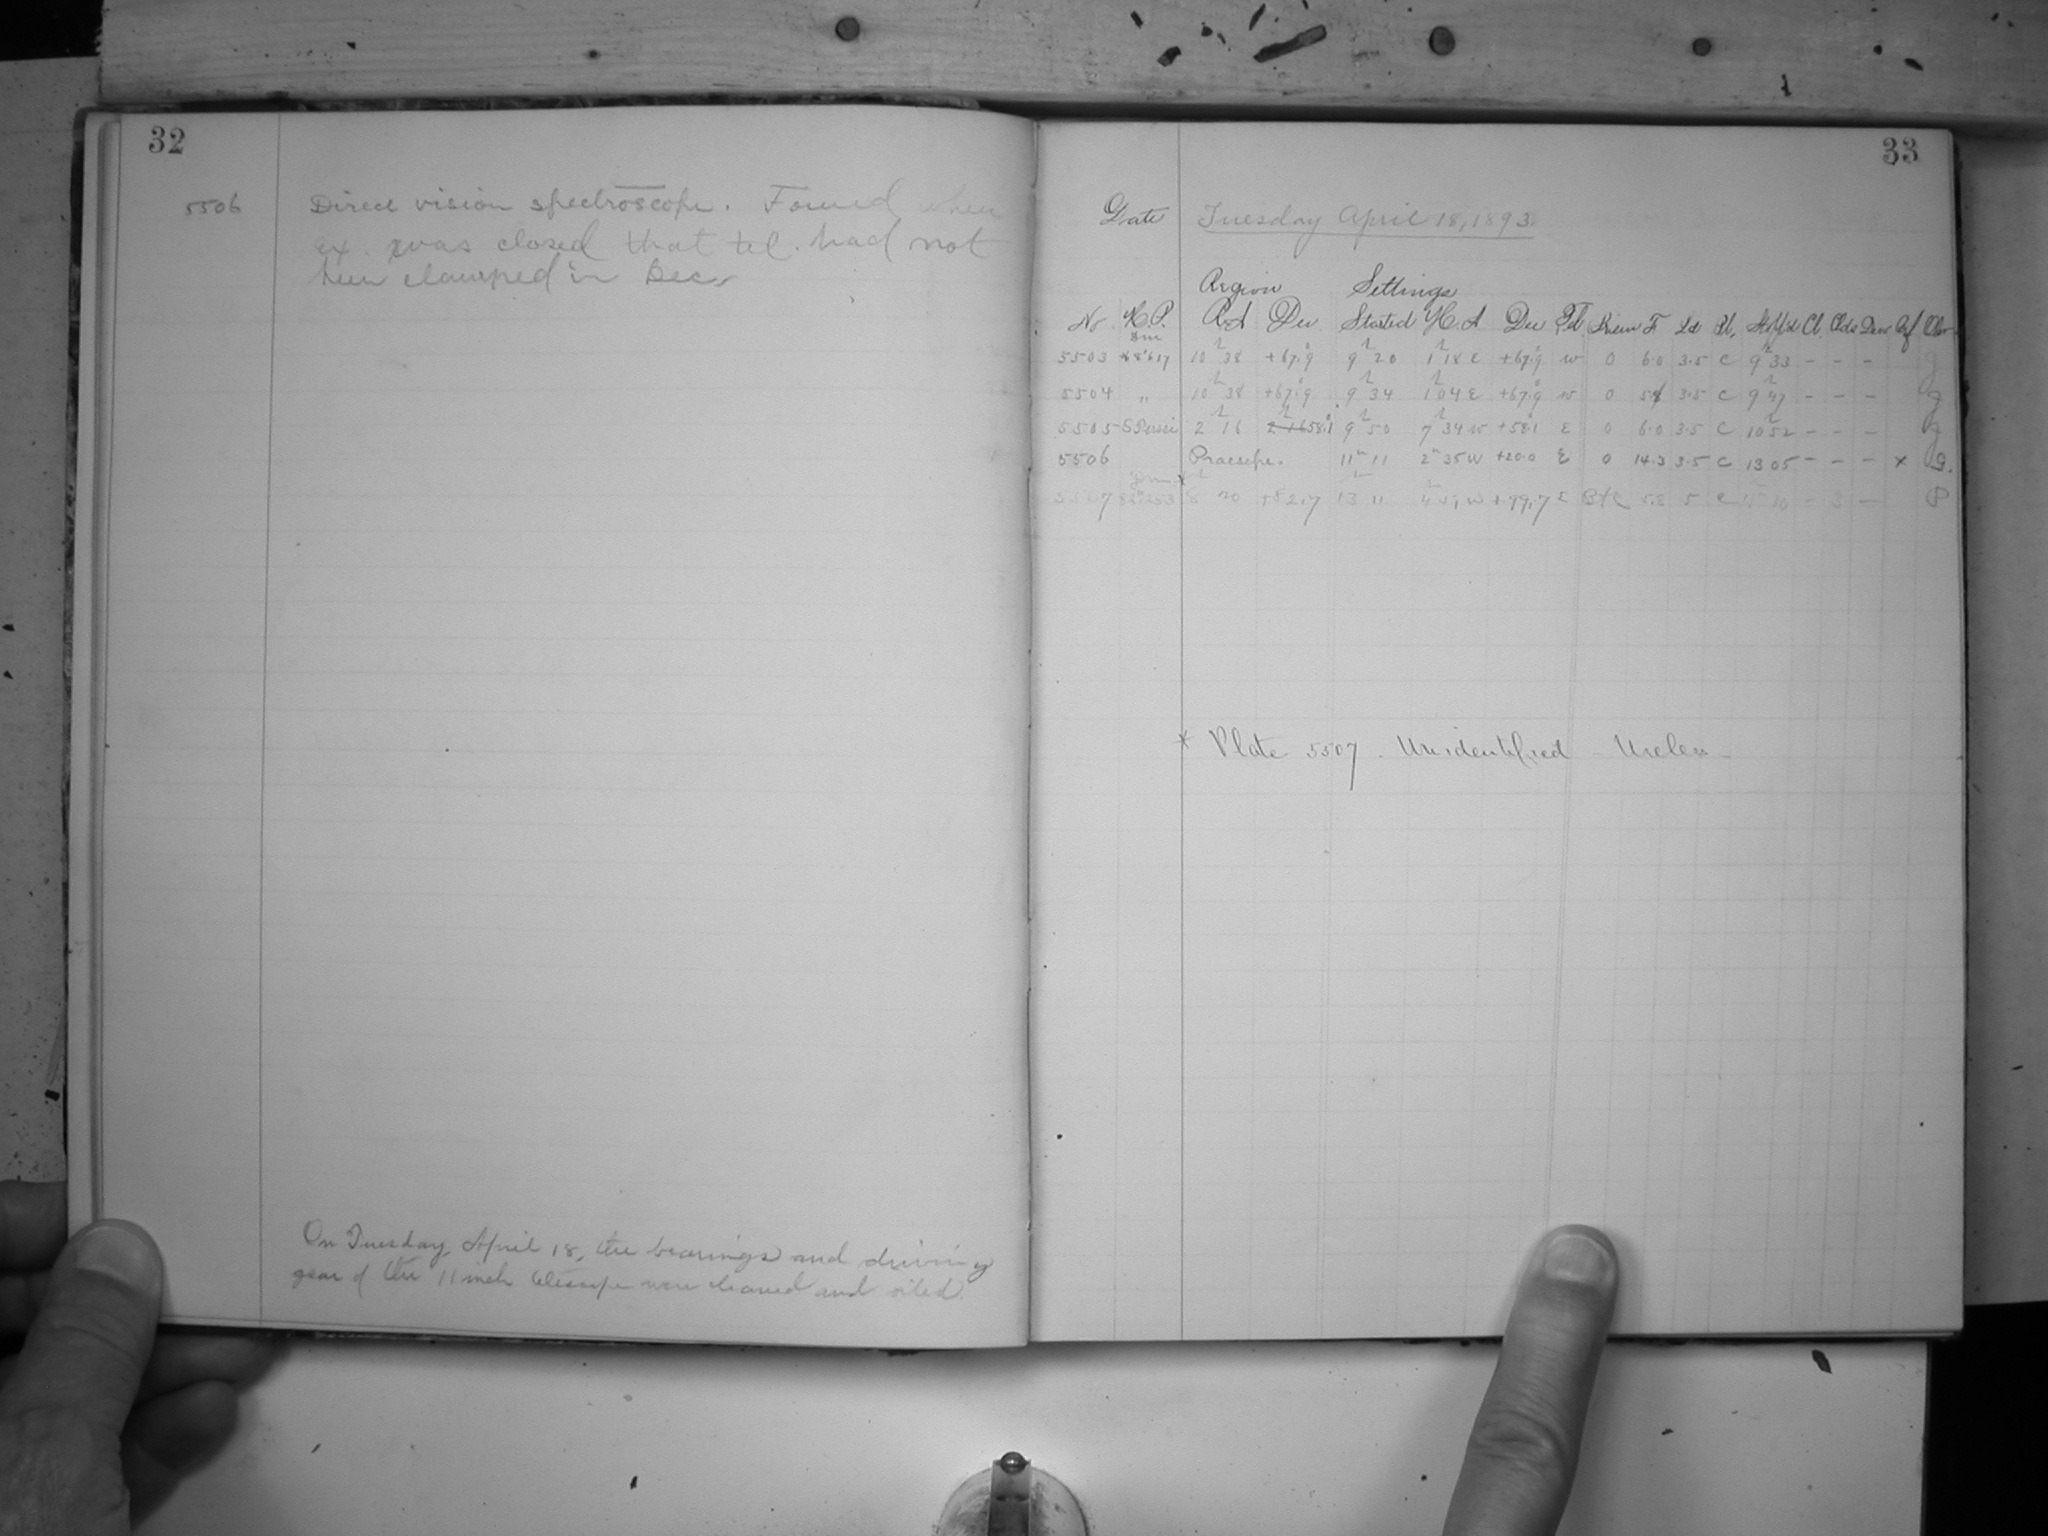 32
5506 Direct vision spectroscope. Found when
ex. was closed that tel. had not
been clamped in Dec.
On Tuesday, April 18, the bearings and driving
gear of the 11 inch telescope were cleaned and oiled.
33
Date Tuesday April 18, 1893.
Region Settings
No. H.P. R.A Dec. Started H.A Dec Tel. F Ld Pl. Cl. Clds Dew Rf Obs
5503 10h 38 +67.9 9h 20 1h 18 E +67.9 W 0 6.0 3.5 C 9h 33 - - - g
5504 " 10h 38 +67.9 9h 34 1h 04 E +67.9 W 0 3.5 C 9h 47 - - - g
5505 S Persei 2h 16 58.1 9h 50 7h 34 W +58.1 E 0 6.0 3.5 C 10h 52 - - - g
5506 Praesepe. 11h 11 2h 35 W +20.0 E 0 14.3 3.5 C 13 05 - - - x G.
5507 8 20 +82.7 13 11 W +79.7 E 5 C - 3 - P
* Plate 5507. Unidentified - Useless